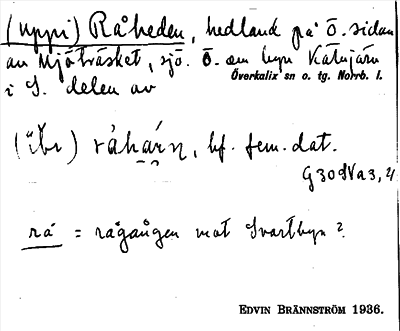 (uppi) Råheden, hedland på Ö. sidan
av Mjöträsket, sjö. Ö. om byn Kätujärn
i S. delen av Överkalix sn o. tg. Norrb. l.
(ɩ̈br) råhárn, bf. fem. dat.
G30SVa3,4
rå = rågången mot Svartbyn?
EDVIN BRÄNNSTRÖM 1936.